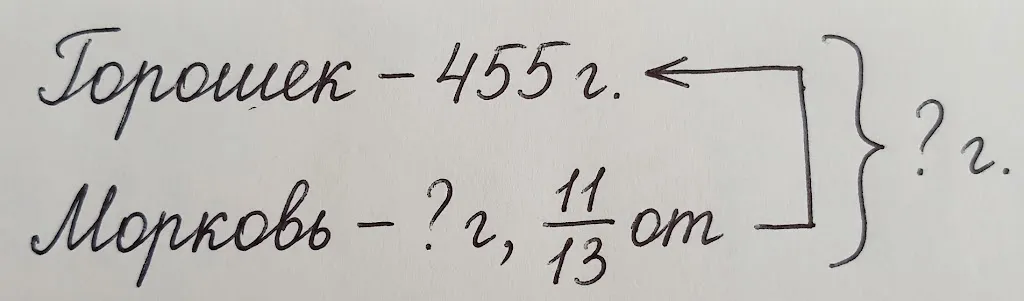 Горошек – 455 г.
Морковь – ? г, 11/13 от
? г.